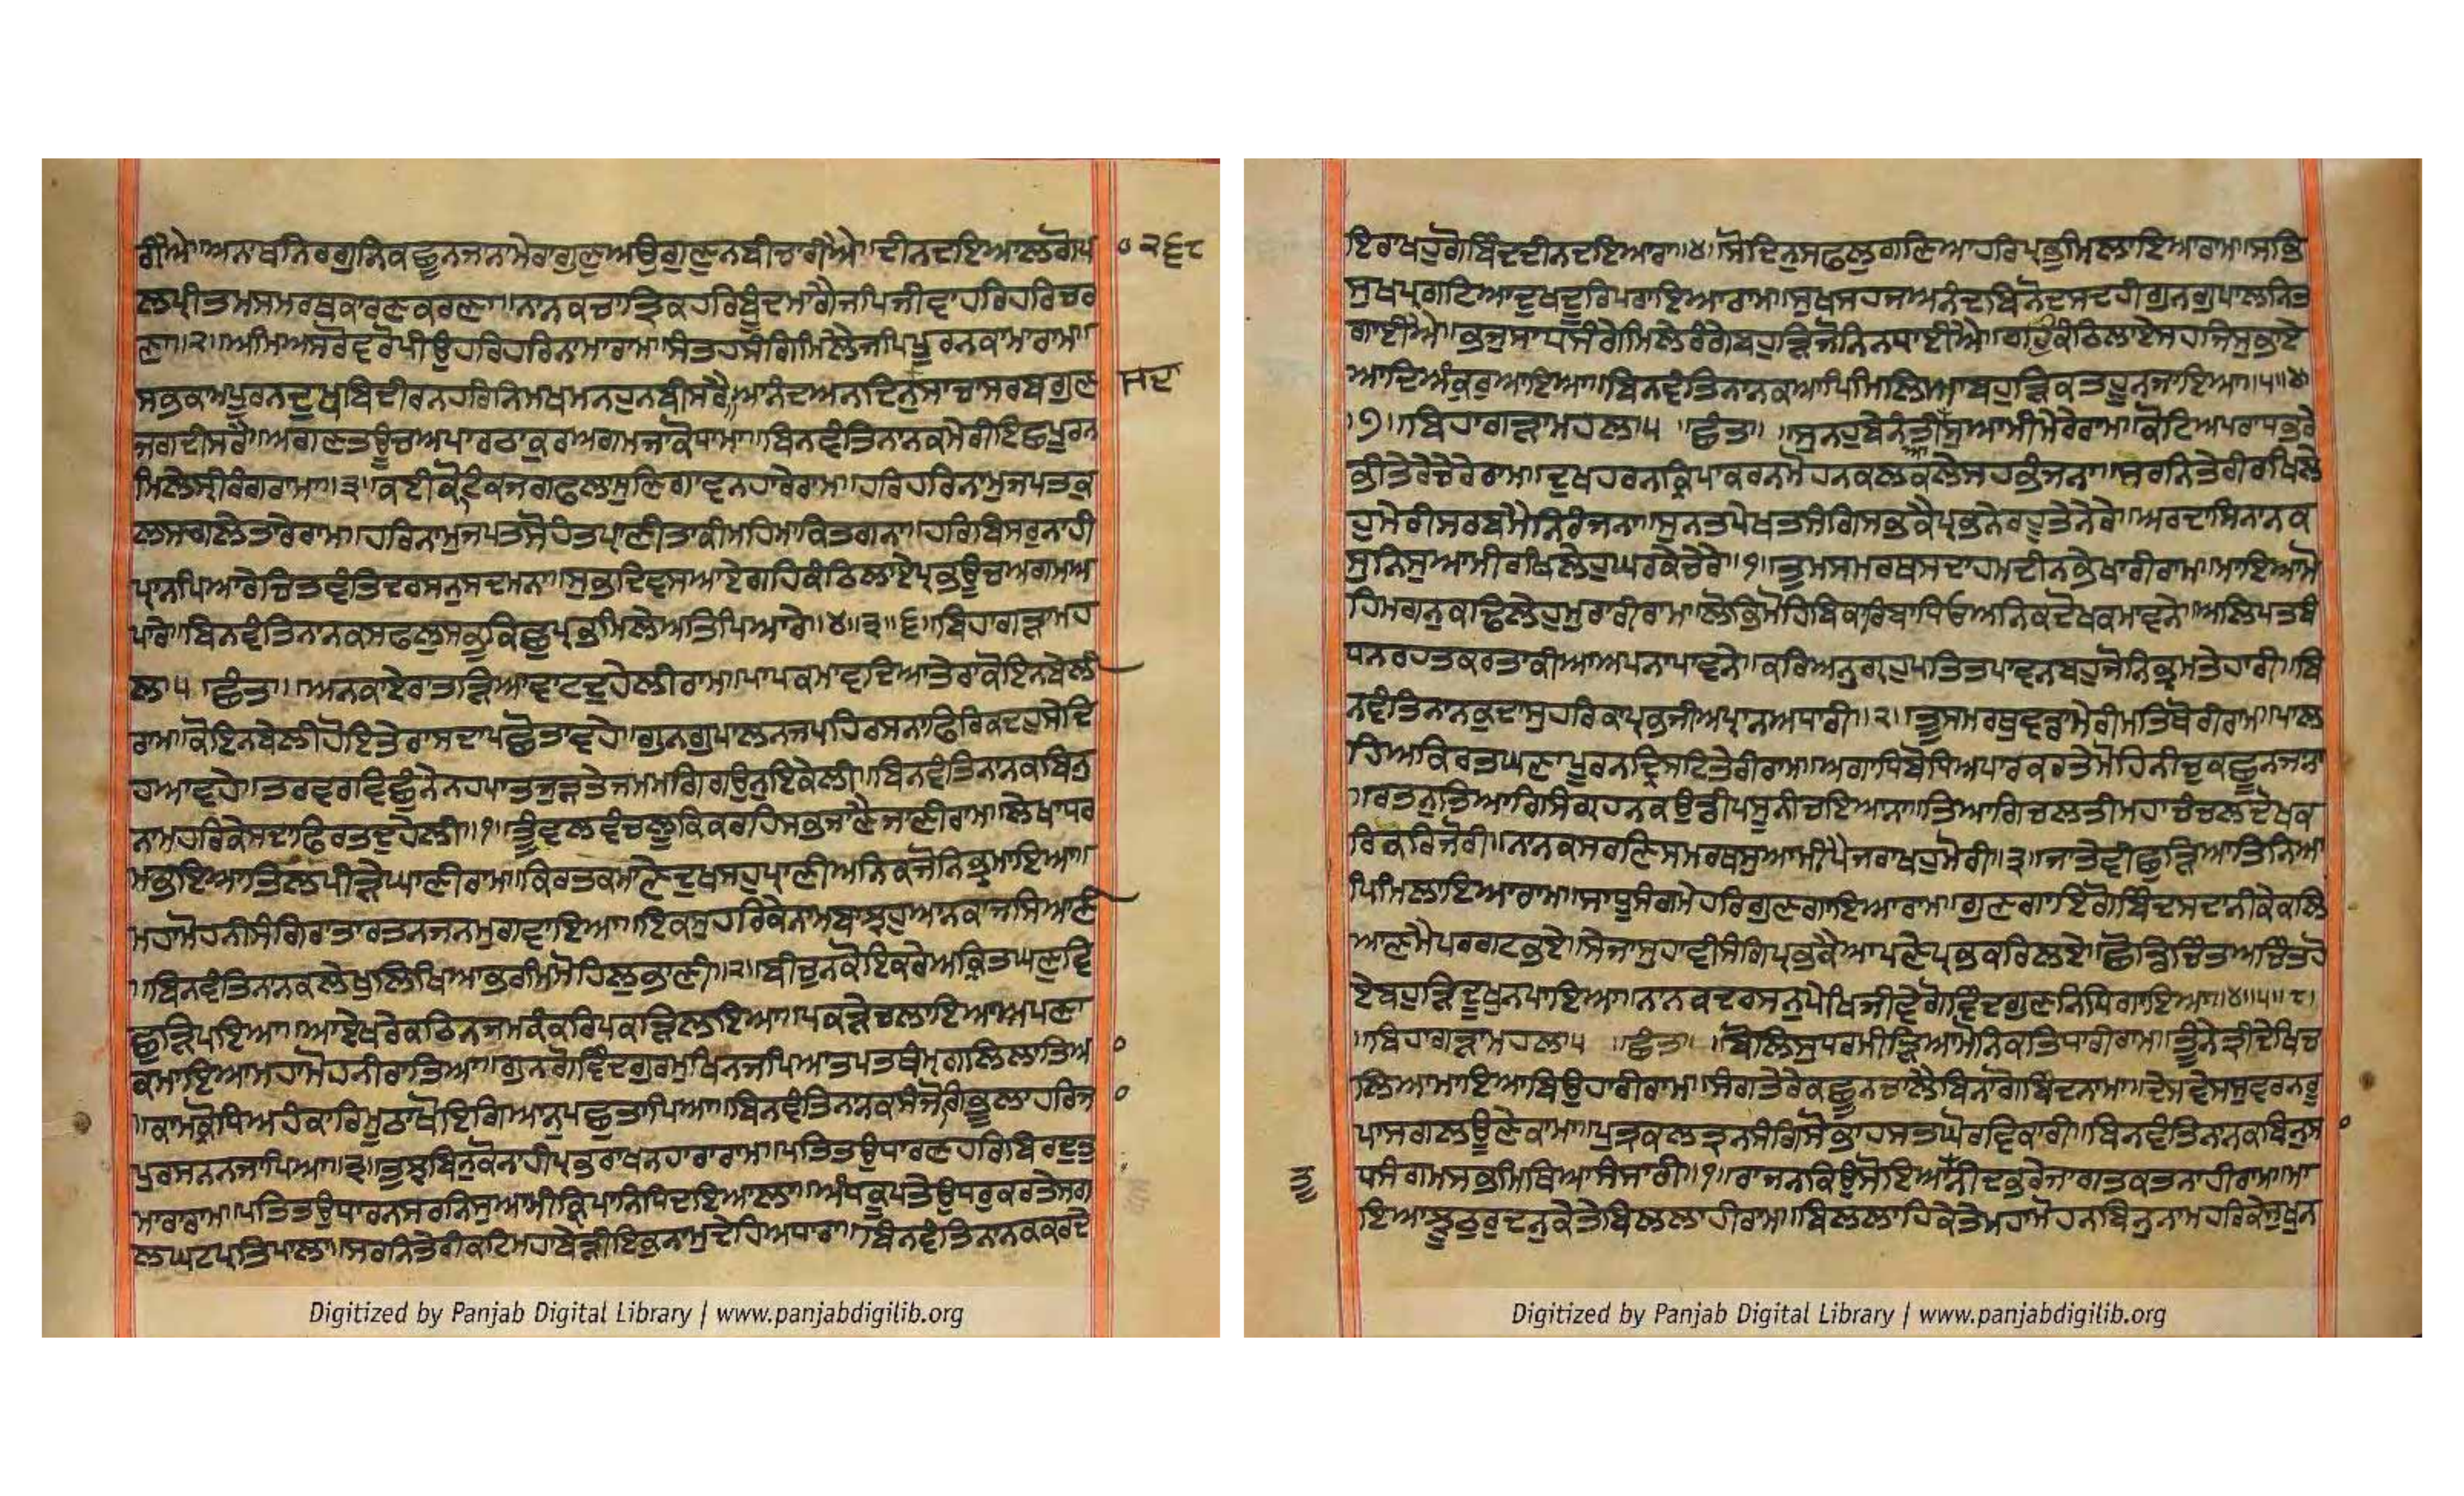 ਰੀਐ॥ਅਨਾਥਨਿਰਗੁਨਿਕਛੂਨਜਨਮੇਰਾਗੁਣੁਅਉਗੁਣੁਨਬੀਚਾਰੀਐ॥ਦੀਨਦਇਆਲਗੋਪ
੦੨੬੮
ਲਪ੍ਰੀਤਮਸਮਰਥਕਾਰਣਕਰਣਾ॥ਨਾਨਕਚਾਤ੍ਰਿਕਹਰਿਬੂੰਦਮਾਗੈਜਪਿਜੀਵਾਹਰਿਹਰਿਚਰ
ਣਾ॥੨॥ਅਮਿਅਸਰੋਵਰੋਪੀਉਹਰਿਹਰਿਨਾਮਾਰਾਮ॥ਸੰਤਹਸੰਗਿਮਿਲੈਜਪਿਪੂਰਨਕਾਮਾਰਾਮ॥
ਸਭਕਾਮਪੂਰਨਦੁਖਬਿਦੀਰਨਹਰਿਨਿਮਖਮਨਹੁਨਬੀਸਰੈ॥ਆਨੰਦਅਨਦਿਨੁਸਾਚਾਸਰਬਗੁਣ
ਸਦਾ
ਜਗਦੀਸਰੈ॥ਅਗਣਤਊਚਅਪਾਰਠਾਕੁਰਅਗਮਜਾਕੋਧਾਮਾ॥ਬਿਨਵੰਤਿਨਾਨਕਮੇਰੀਇਛਪੂਰਨ
ਮਿਲੇਸ੍ਰੀਰੰਗਰਾਮਾ॥੩॥ਕਈਕੋਟਿਕਜਗਫਲਾਸੁਣਿਗਾਵਨਹਾਰੇਰਾਮ॥ਹਰਿਹਰਿਨਾਮੁਜਪਤਕੁ
ਲਸਗਲੇਤਾਰੇਰਾਮ॥ਹਰਿਨਾਮੁਜਪਤਸੋਹੰਤਪ੍ਰਾਣੀਤਾਕੀਮਹਿਮਾਕਿਤਗਨਾ॥ਹਰਿਬਿਸਰੁਨਾਹੀ
ਪ੍ਰਾਨਪਿਆਰੇਚਿਤਵੰਤਿਦਰਸਨੁਸਦਮਨਾ॥ਸੁਭਦਿਵਸਆਏਗਹਿਕੰਠਿਲਾਏਪ੍ਰਭਊਚਅਗਮਅ
ਪਾਰੇ॥ਬਿਨਵੰਤਿਨਾਨਕਸਫਲੁਸਭੁਕਿਛੁਪ੍ਰਭਮਿਲੇਅਤਿਪਿਆਰੇ॥੪॥੩॥੬॥ਬਿਹਾਗੜਾਮਹ
ਲਾ੫ ਛੰਤ॥ ਅਨਕਾਏਰਾਤੜਿਆਵਾਟਦੁਹੇਲੀਰਾਮ॥ਪਾਪਕਮਾਵਦਿਆਤੇਰਾਕੋਇਨਬੇਲੀ
ਰਾਮ॥ਕੋਇਨਬੇਲੀਹੋਇਤੇਰਾਸਦਾਪਛੋਤਾਵਹੇ॥ਗੁਨਗੁਪਾਲਨਜਪਹਿਰਸਨਾਫਿਰਿਕਦਹੁਸੇਦਿ
ਹਆਵਹੇ॥ਤਰਵਰਵਿਛੁੰਨੇਨਹਪਾਤਜੁੜਤੇਜਮਮਗਿਗਉਨੁਇਕੇਲੀ॥ਬਿਨਵੰਤਿਨਾਨਕਬਿਨੁ
ਨਾਮਹਰਿਕੇਸਦਾਫਿਰਤਦੁਹੇਲੀ॥੧॥ਤੂੰਵਲਵੰਚਲੂਕਿਕਰਹਿਸਭਜਾਣੈਜਾਣੀਰਾਮ॥ਲੇਖਾਧਰ
ਮਭਇਆਤਿਲਪੀੜੇਘਾਣੀਰਾਮ॥ਕਿਰਤਕਮਾਣੇਦੁਖਸਹੁਪ੍ਰਾਣੀਅਨਿਕਜੋਨਿਭ੍ਰਮਾਇਆ॥
ਮਹਾਮੋਹਨੀਸੰਗਿਰਾਤਾਰਤਨਜਨਮੁਗਵਾਇਆ॥ਇਕਸੁਹਰਿਕੇਨਾਮਬਾਝਹੁਆਨਕਾਜਸਿਆਣੀ
॥ਬਿਨਵੰਤਿਨਾਨਕਲੇਖੁਲਿਖਿਆਭਰਮਿਮੋਹਿਲੁਭਾਣੀ॥੨॥ਬੀਚੁਨਕੋਇਕਰੇਅਕ੍ਰਿਤਘਣੁਵਿ
ਛੁੜਿਪਇਆ॥ਆਏਖਰੇਕਠਿਨਜਮਕੰਕਰਿਪਕੜਿਲਇਆ॥ਪਕੜੇਚਲਾਇਆਅਪਣਾ
ਕਮਾਇਆਮਹਾਮੋਹਨੀਰਾਤਿਆ॥ਗੁਨਗੋਵਿੰਦਗੁਰਮੁਖਿਨਜਪਿਆਤਪਤਥੰਮ੍ਹਗਲਿਲਾਤਿਆ
॥ਕਾਮਕ੍ਰੋਧਿਅਹੰਕਾਰਿਮੂਠਾਖੋਇਗਿਆਨੁਪਛੁਤਾਪਿਆ॥ਬਿਨਵੰਤਿਨਾਨਕਸੰਜੋਗਿਭੂਲਾਹਰਿਜ
ਪੁਰਸਨਨਜਾਪਿਆ॥੩॥ਤੁਝਬਿਨੁਕੋਨਾਹੀਪ੍ਰਭਰਾਖਨਹਾਰਾਰਾਮ॥ਪਤਿਤਉਧਾਰਣਹਰਿਬਿਰਦੁਤੁ
ਮਾਰਾਰਾਮ॥ਪਤਿਤਉਧਾਰਨਸਰਨਿਸੁਆਮੀਕ੍ਰਿਪਾਨਿਧਿਦਇਆਲਾ॥ਅੰਧਕੂਪਤੇਉਧਰੁਕਰਤੇਸਗ
ਲਘਟਪ੍ਰਤਿਪਾਲਾ॥ਸਰਨਿਤੇਰੀਕਟਿਮਹਾਬੇੜੀਇਕੁਨਾਮੁਦੇਹਿਅਧਾਰਾ॥ਬਿਨਵੰਤਿਨਾਨਕਕਰਦੇ
Digitized by Panjab Digital Library | www.panjabdigilib.org
ਇਰਾਖਹੁਗੋਬਿੰਦਦੀਨਦਇਆਰਾ॥੪॥ਸੋਦਿਨੁਸਫਲੁਗਣਿਆਹਰਿਪ੍ਰਭੂਮਿਲਾਇਆਰਾਮ॥ਸਭਿ
ਸੁਖਪ੍ਰਗਟਿਆਦੁਖਦੂਰਿਪਰਾਇਆਰਾਮ॥ਸੁਖਸਹਜਅਨੰਦਬਿਨੋਦਸਦਹੀਗੁਨਗੁਪਾਲਨਿਤ
ਗਾਈਐ॥ਭਜੁਸਾਧਸੰਗੇਮਿਲੇਰੰਗੇਬਹੁੜਿਜੋਨਿਨਧਾਈਐ॥ਗਹਿਕੰਠਿਲਾਏਸਹਜਿਸੁਭਾਏ
ਆਦਿਅੰਕੁਰਆਇਆ॥ਬਿਨਵੰਤਿਨਾਨਕਆਪਿਮਿਲਿਆਬਹੁੜਿਕਤਹੂਨਜਾਇਆ॥੫॥੪
।੭॥ਬਿਹਾਗੜਾਮਹਲਾ੫ ਛੰਤ॥ ਸੁਨਹੁਬੇਨੰਤੀਸੁਆਮੀਮੇਰੇਰਾਮ॥ਕੋਟਿਅਪਰਾਧਭਰੇ
ਭੀਤੇਰੇਚੇਰੇਰਾਮ॥ਦੁਖਹਰਨਕ੍ਰਿਪਾਕਰਨਮੋਹਨਕਲਕਲੇਸਹਭੰਜਨਾ॥ਸਰਨਿਤੇਰੀਰਖਿਲੇ
ਹੁਮੇਰੀਸਰਬਮੈਨਿਰੰਜਨਾ॥ਸੁਨਤਪੇਖਤਸੰਗਿਸਭਕੈਪ੍ਰਭਨੇਰਹੂਤੇਨੇਰੇ॥ਅਰਦਾਸਿਨਾਨਕ
ਸੁਨਿਸੁਆਮੀਰਖਿਲੇਹੁਘਰਕੇਚੇਰੇ॥੧॥ਤੂਸਮਰਥਸਦਾਹਮਦੀਨਭੇਖਾਰੀਰਾਮ॥ਮਾਇਆਮੋ
ਹਿਮਗਨੁਕਢਿਲੇਹੁਮੁਰਾਰੀਰਾਮ॥ਲੋਭਿਮੋਹਿਬਿਕਾਰਿਬਾਧਿਓਅਨਿਕਦੋਖਕਮਾਵਨੇ॥ਅਲਿਪਤਬੰ
ਧਨਰਹਤਕਰਤਾਕੀਆਅਪਨਾਪਾਵਨੇ॥ਕਰਿਅਨੁਗ੍ਰਹੁਪਤਿਤਪਾਵਨਬਹੁਜੋਨਿਭ੍ਰਮਤੇਹਾਰੀ॥ਬਿ
ਨਵੰਤਿਨਾਨਕੁਦਾਸੁਹਰਿਕਾਪ੍ਰਭਜੀਅਪ੍ਰਾਨਅਧਾਰੀ॥੨॥ਤੂਸਮਰਥੁਵਡਾਮੇਰੀਮਤਿਥੋਰੀਰਾਮ॥ਪਾਲ
ਹਿਅਕਿਰਤਘਣਾਪੂਰਨਦ੍ਰਿਸਟਿਤੇਰੀਰਾਮ॥ਅਗਾਧਿਬੋਧਿਅਪਾਰਕਰਤੇਮੋਹਿਨੀਚੁਕਛੂਨਜਨਾ
॥ਰਤਨੁਤਿਆਗਿਸੰਗ੍ਰਹਨਕਉਡੀਪਸੂਨੀਚਇਆਨਾ॥ਤਿਆਗਿਚਲਤੀਮਹਾਚੰਚਲਦੋਖਕ
ਰਿਕਰਿਜੋਰੀ॥ਨਾਨਕਸਰਣਿਸਮਰਥਸੁਆਮੀਪੈਜਰਾਖਹੁਮੋਰੀ॥੩॥ਜਾਤੇਵੀਛੁੜਿਆਤਿਨਿਆ
ਪਿਮਿਲਾਇਆਰਾਮ॥ਸਾਧੂਸੰਗਮੇਹਰਿਗੁਣਗਾਇਆਰਾਮ॥ਗੁਣਗਾਇਗੋਬਿੰਦਸਦਾਨੀਕੇਕਲਿ
ਆਣਮੈਪਰਗਟਭਏ॥ਸੇਜਾਸੁਹਾਵੀਸੰਗਿਪ੍ਰਭਕੈਆਪਣੇਪ੍ਰਭਕਰਿਲਏ॥ਛੋਡਿਚਿੰਤਅਚਿੰਤਹੋ
ਏਬਹੁੜਿਦੂਖੁਨਪਾਇਆ॥ਨਾਨਕਦਰਸਨੁਪੇਖਿਜੀਵੇਗੋਵਿੰਦਗੁਣਨਿਧਿਗਾਇਆ॥੪॥੫॥੮।
॥ਬਿਹਾਗੜਾਮਹਲਾ੫ ॥ਛੰਤ॥ ॥ਬੋਲਿਸੁਧਰਮੀੜਿਆਮੋਨਿਕਤਿਧਾਰੀਰਾਮ॥ਤੂਨੇਤ੍ਰੀਦੇਖਿਚ
ਲਿਆਮਾਇਆਬਿਉਹਾਰੀਰਾਮ॥ਸੰਗਤੇਰੇਕਛੂਨਚਾਲੈਬਿਨਾਗੋਬਿੰਦਨਾਮਾ॥ਦੇਸਵੇਸਸੁਵਰਨਰੂ
ਪਾਸਗਲਊਣੇਕਾਮਾ॥ਪੁਤ੍ਰਕਲਤ੍ਰਨਸੰਗਿਸੋਭਾਹਸਤਘੋਰਵਿਕਾਰੀ॥ਬਿਨਵੰਤਿਨਾਨਕਬਿਨੁਸਾ
ਧਸੰਗਮਸਭਮਿਥਿਆਸੰਸਾਰੀ॥੧॥ਰਾਜਨਕਿਉਸੋਇਆਨੀਦਭਰੇਜਾਗਤਕਤਨਾਹੀਰਾਮ॥ਮਾ
ਤੂ
ਇਆਝੂਠੁਰੁਦਨੁਕੇਤੇਬਿਲਲਾਹੀਰਾਮ॥ਬਿਲਲਾਹਿਕੇਤੇਮਹਾਮੋਹਨਬਿਨੁਨਾਮਹਰਿਕੇਸੁਖੁਨ
Digitized by Panjab Digital Library | www.panjabdigilib.org